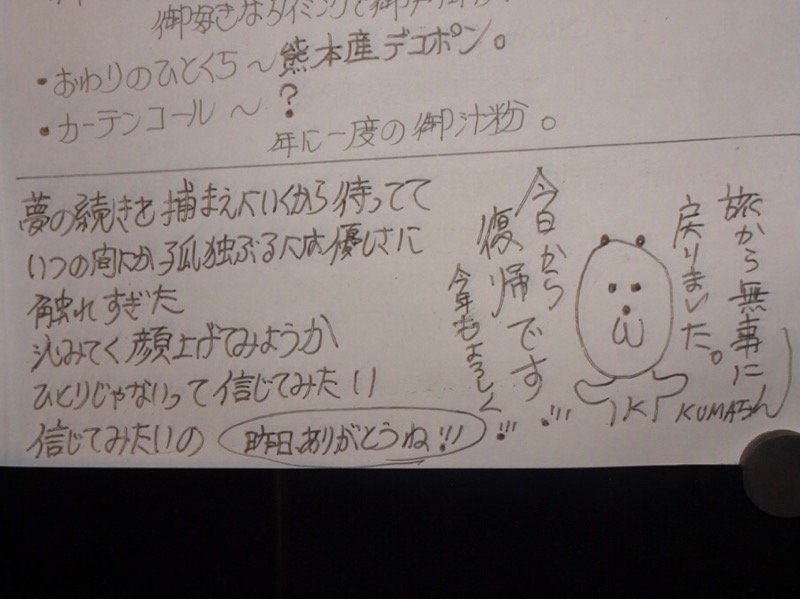 御好きなタイミングで御
・おわりのひとくち〜熊本産デコポン。
・カーテンコール〜?
年に一度の御汁粉。
夢の続きを捕まえにいくから待ってて
いつの間にか孤独ぶるには優しさに
触れすぎた
沁みてく顔上げてみようか
ひとりじゃないって信じてみたい
信じてみたいの
昨日、ありがとうね!!!
旅から無事に
戻りました。
今日から
復帰です!!!
今年もよろしく!!!
KUMAちん